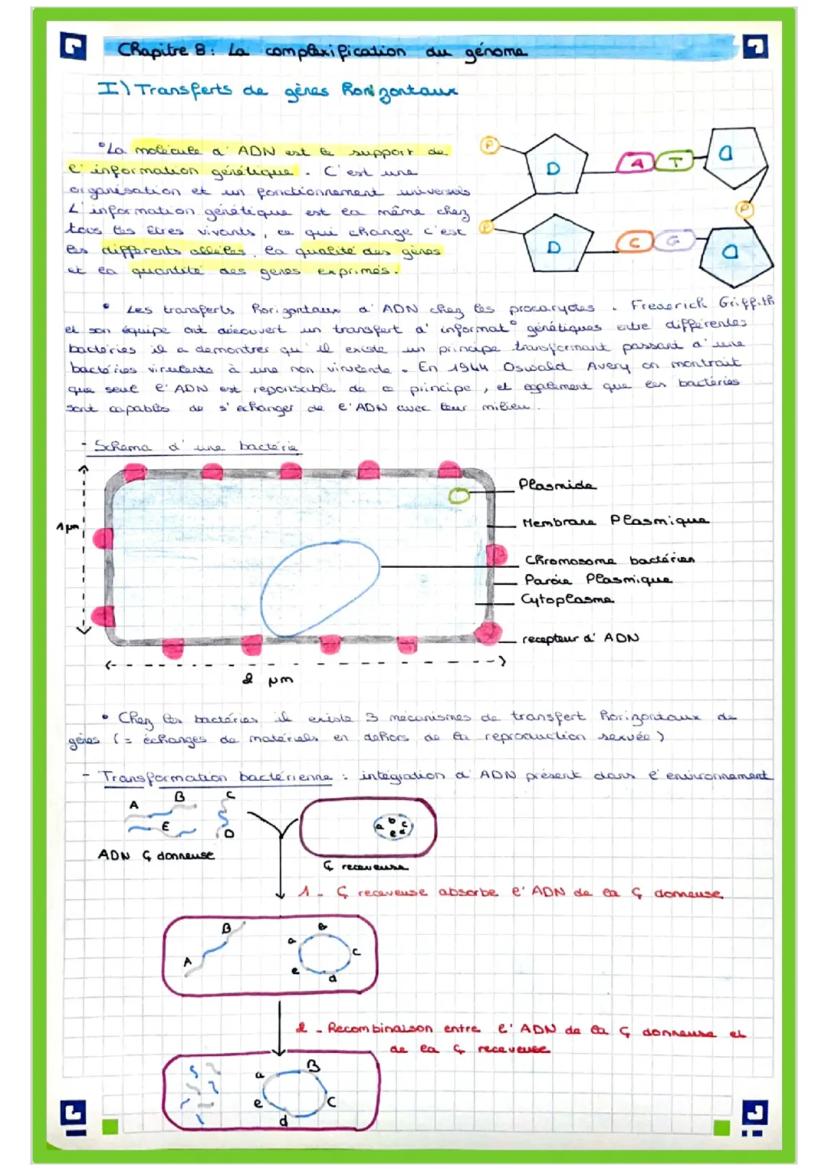 Chapitre 8: La complexification du génome
I) Transferts de gènes Horizontaux
• La molécule d'ADN est le support de
l'information génétique. C'est une
organisation et un fonctionnement universels
L'information génétique est la même chez
tous les êtres vivants, ce qui change c'est
les différents allèles, la qualité des gènes
et la quantité des gènes exprimés.
P
D
A
T
D
P
P
D
C
G
D
• Les transferts Horizontaux d'ADN chez les procaryotes. Frederich Griffith
et son équipe ont découvert un transfert d'informat° génétiques entre différentes
bactéries il a demontrer qu'il existe un principe transformant passant d'une
bactéries virulente à une non virulente. En 1944 Oswald Avery on montrait
que seul l'ADN est reponsable de ce principe, et egalement que les bactéries
sont capables de s'echanger de l'ADN avec leur milieu.
- Schema d'une bactérie
Plasmide
1 µm
Membrane Plasmique
Chromosome bactérien
Paroie Plasmique
Cytoplasme
recepteur d'ADN
2 µm
• Chez les bactéries il existe 3 mécanismes de transfert horizontaux de
gènes (= échanges de matériels en dehors de la reproduction sexuée)
- Transformation bactérienne : intégration d'ADN présent dans l'environnement
A B C
E D
a b c e d
ADN ç donneuse
ç receveuse
1 - ç receveuse absorbe l'ADN de la ç donneuse
B
A
a b c d e
2 - Recombinaison entre l'ADN de la ç donneuse et
de la ç receveuse
a B C d e